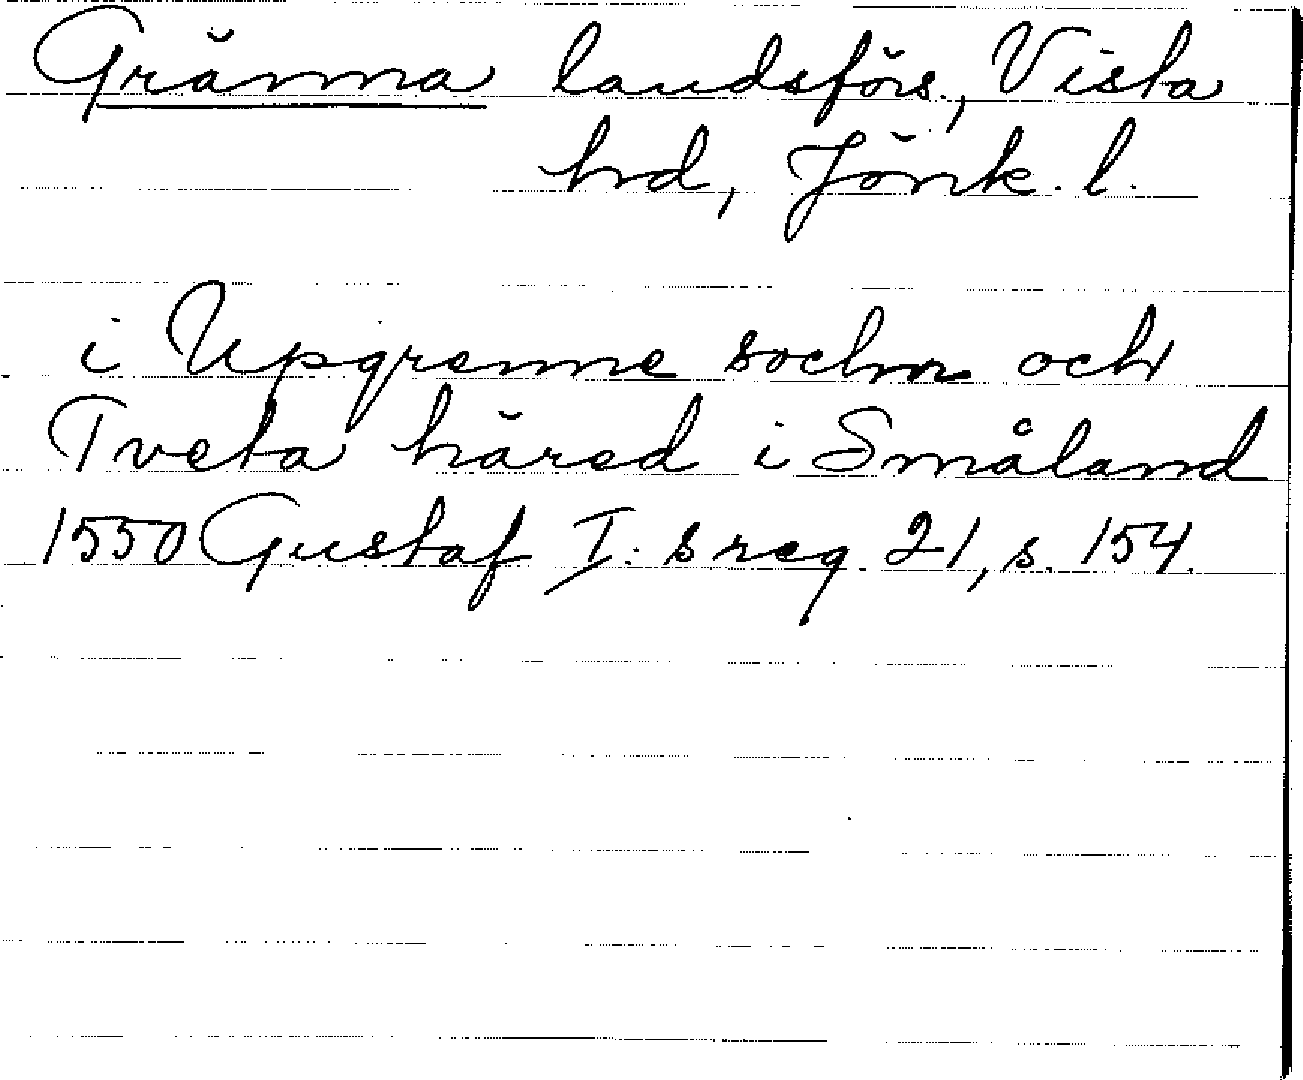 Gränna landsförs., Vista
hrd, Jönk. l.
i Upgrenne sochn och
Tveta härad i Småland
1550 Gustaf I:s reg. 21, s. 154.